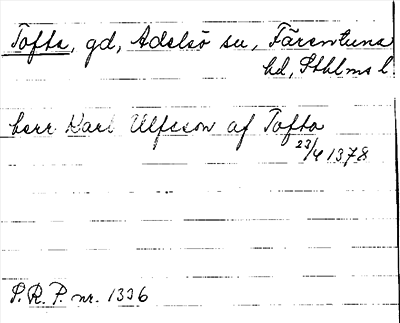 Tofta, gd, Adelsö sn, Färentuna
hd, Sthlms l.
herr Karl Ulfsson af Tofta
23/4 1378
S.R.P. nr. 1336